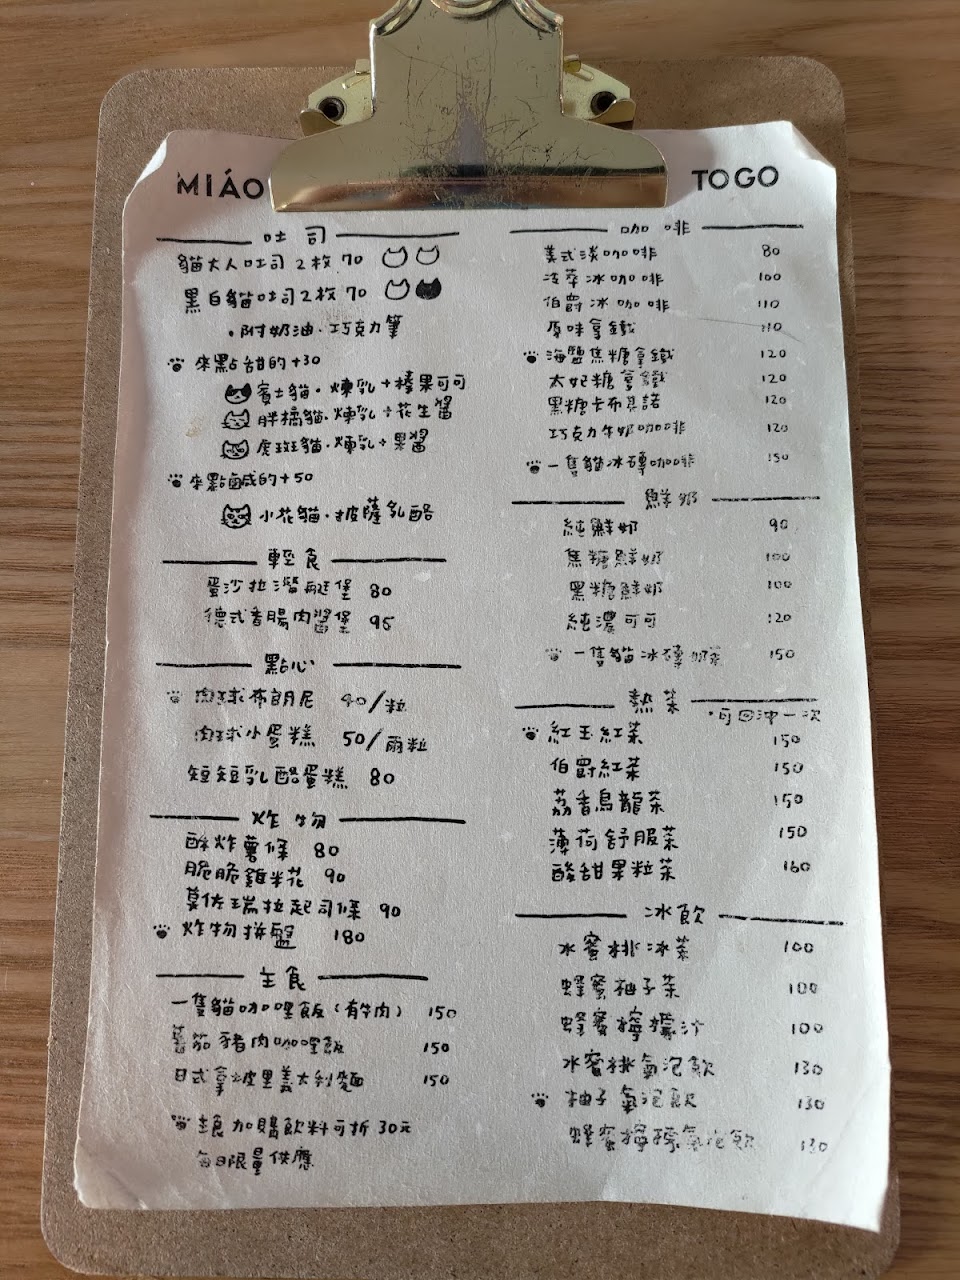 MIÁO TOGO
吐司
貓大人吐司2枚 70
黑白貓吐司2枚 70
·附奶油·巧克力筆
來點甜的+30
賓士貓·煉乳+榛果可可
胖橘貓·煉乳+花生醬
虎斑貓·煉乳+果醬
來點鹹的+50
小花貓·披薩乳酪
輕食
蛋沙拉潛艇堡 80
德式香腸肉醬堡 95
點心
肉球布朗尼 40/粒
肉球小蛋糕 50/兩粒
短短乳酪蛋糕 80
炸物
酥炸薯條 80
脆脆雞米花 90
莫佐瑞拉起司條 90
炸物拼盤 180
主食
一隻貓咖哩飯(有牛肉) 150
蕃茄豬肉咖哩飯 150
日式拿坡里義大利麵 150
主食加購飲料可折30元
每日限量供應
咖啡
美式淡咖啡 80
冰萃冰咖啡 100
伯爵冰咖啡 110
原味拿鐵 110
海鹽焦糖拿鐵 120
太妃糖拿鐵 120
黑糖卡布其諾 120
巧克力牛奶咖啡 120
一隻貓冰磚咖啡 150
鮮奶
純鮮奶 90
焦糖鮮奶 100
黑糖鮮奶 100
純濃可可 120
一隻貓冰磚奶茶 150
熱茶
·可回沖一次
紅玉紅茶 150
伯爵紅茶 150
荔香烏龍茶 150
薄荷舒服茶 150
酸甜果粒茶 160
冰飲
水蜜桃冰茶 100
蜂蜜柚子茶 100
蜂蜜檸檬汁 100
水蜜桃氣泡飲 130
柚子氣泡飲 130
蜂蜜檸檬氣泡飲 130